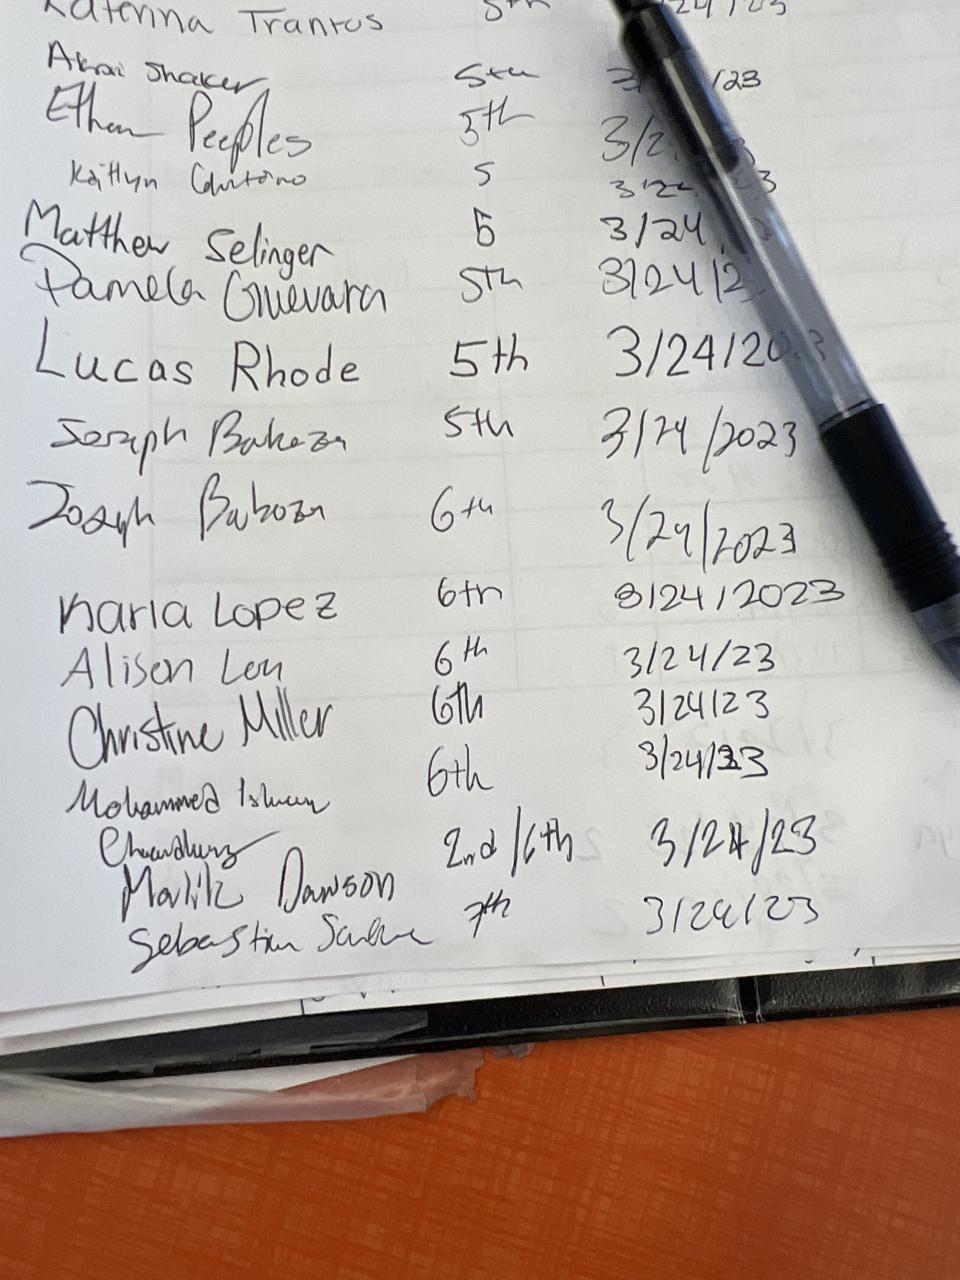 Katerina Trantos 5th 24/23
Shaker 5th 3/ /23
Ethan Peeples 5th 3/2 3
Kaitlyn 5 3/24 3
Matthew Selinger 5 3/24 3
Pamela Guevara 5th 3/24/2
Lucas Rhode 5th 3/24/20 3
Joseph 5th 3/24/2023
Joseph 6th 3/24/2023
Karla Lopez 6th 3/24/2023
Alison 6th 3/24/23
Christine Miller 6th 3/24/23
Mohammed 6th 3/24/23
Chowdhury
Malik Dawson 2nd/6th 3/24/23
Sebastian 7th 3/24/23